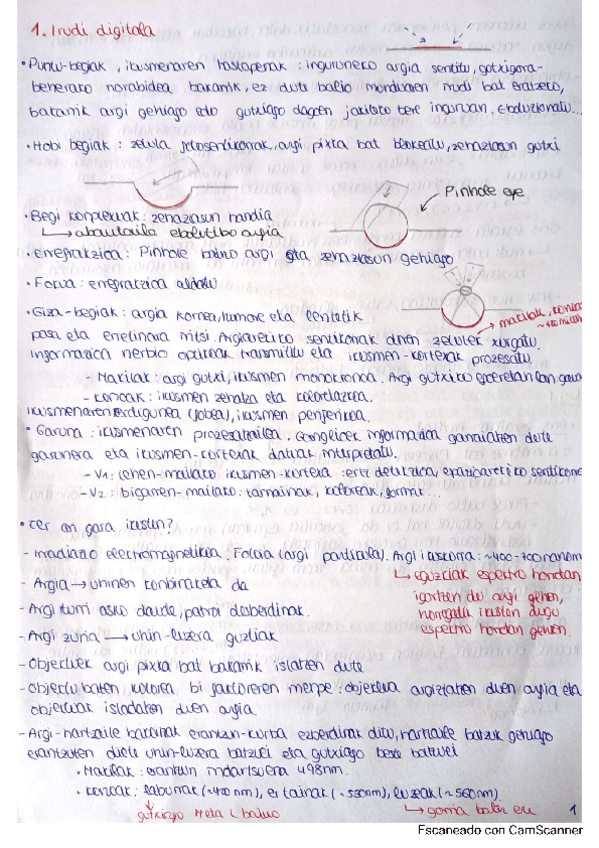 1. Irudi digitala
• Puntu-begiak, ikusmenaren hastapenak: inguruneko argia sentitu, gutxigora-
beherako norabidea bakarrik, ez dute balio munduaren irudi bat eratzeko,
bakarrik argi gehiago edo gutxiago dagoen jakiteko bere inguruan. Eboluzionatu...
• Hobi begiak: zelula fotosentikorrak, argi pixka bat blokeatu, zehaztasun gutxi
Pinhole eye
• Begi konplexuak: zehaztasun handia
↳ abantaila ebolutibo argia
• errefrakzioa: Pinhole baino argi eta zehaztasun gehiago
• Fokua: errefrakzioa aldatu
• Giza-begiak: argia kornea, humore eta lentetik
→ makilak, konoak
pasa eta erretinara iritsi. Argiarekiko sentikorrak diren zelulek xurgatu.
Informazioa nerbio optikoak transmititu eta ikusmen-kortexak prozesatu.
- Makilak: argi gutxi, ikusmen monokromoa. Argi gutxiko egoeretan
- Konoak: ikusmen zehatza eta koloretakoa.
ikusmenaren erdigunea (fobea), ikusmen periferikoa.
• Garuna: ikusmenaren prozesatzailea. Ganglioek informazioa garraiatzen dute
garunera eta ikusmen-kortexak datuak interpretatu.
- V1: lehen-mailako ikusmen-kortexa: ertz detekzioa, espazioarekiko sentikorra
- V2: bigarren-mailako: tamainak, koloreak, formak...
• Zer ari gara ikusten?
- Irradiazio elektromagnetikoa. Fotoia (argi partikula). Argi ikuskorra: ~400-700 nanom
↳ eguzkiak espektro hondan
- Argia → uhinen konbinaketa da
igortzen du argi gehien,
- Argi iturri asko daude, patroi desberdinak.
horregatik ikusten dugu
- Argi zuria → uhin-luzera guztiak
espektro hondan gehien.
- Objektuek argi pixka bat bakarrik islatzen dute
- Objektu baten kolorea bi faktoreren menpe: objektua argiztatzen duen argia eta
objektuak islatzen duen argia
- Argi-hartzaile bakoitzak erantzun-kurba ezberdinak ditu, hartzaile batzuk gehiago
erantzuten diete uhin-luzera batzuei eta gutxiago beste batzuei
• Makilak: erantzun indartsuena 498nm.
• Konoak: laburrak (~420 nm), ertainak (~530nm), luzeak (~560nm)
↳ gutxiago
↳ gorria
1
Escaneado con CamScanner